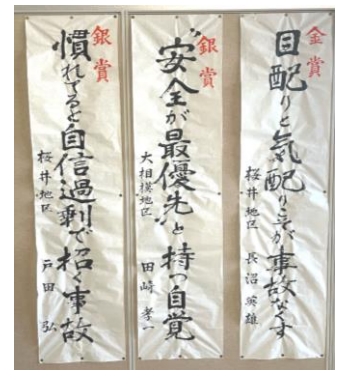 金賞
目配りと気配りこそが事故なくす
桜井地区 長沼 雄
銀賞
"安全が最優先"と持つ自覚
大相模地区 田崎孝一
銀賞
慣れてると自信過剰で招く事故
桜井地区 戸田弘